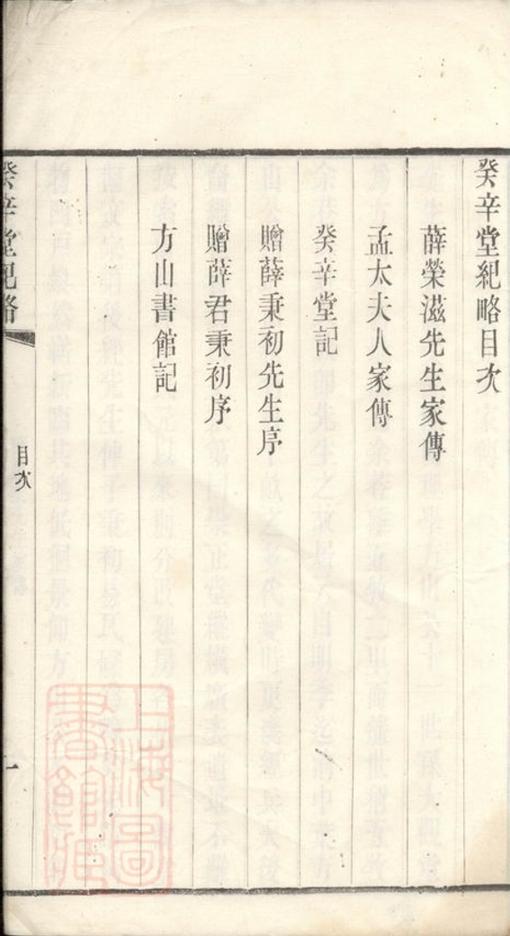 癸辛堂紀略目次
薛榮滋先生家傳
孟太夫人家傳
癸辛堂記
贈薛秉初先生序
贈薛君秉初序
方山書館記
癸辛堂紀略
目次
一
上海圖書館藏